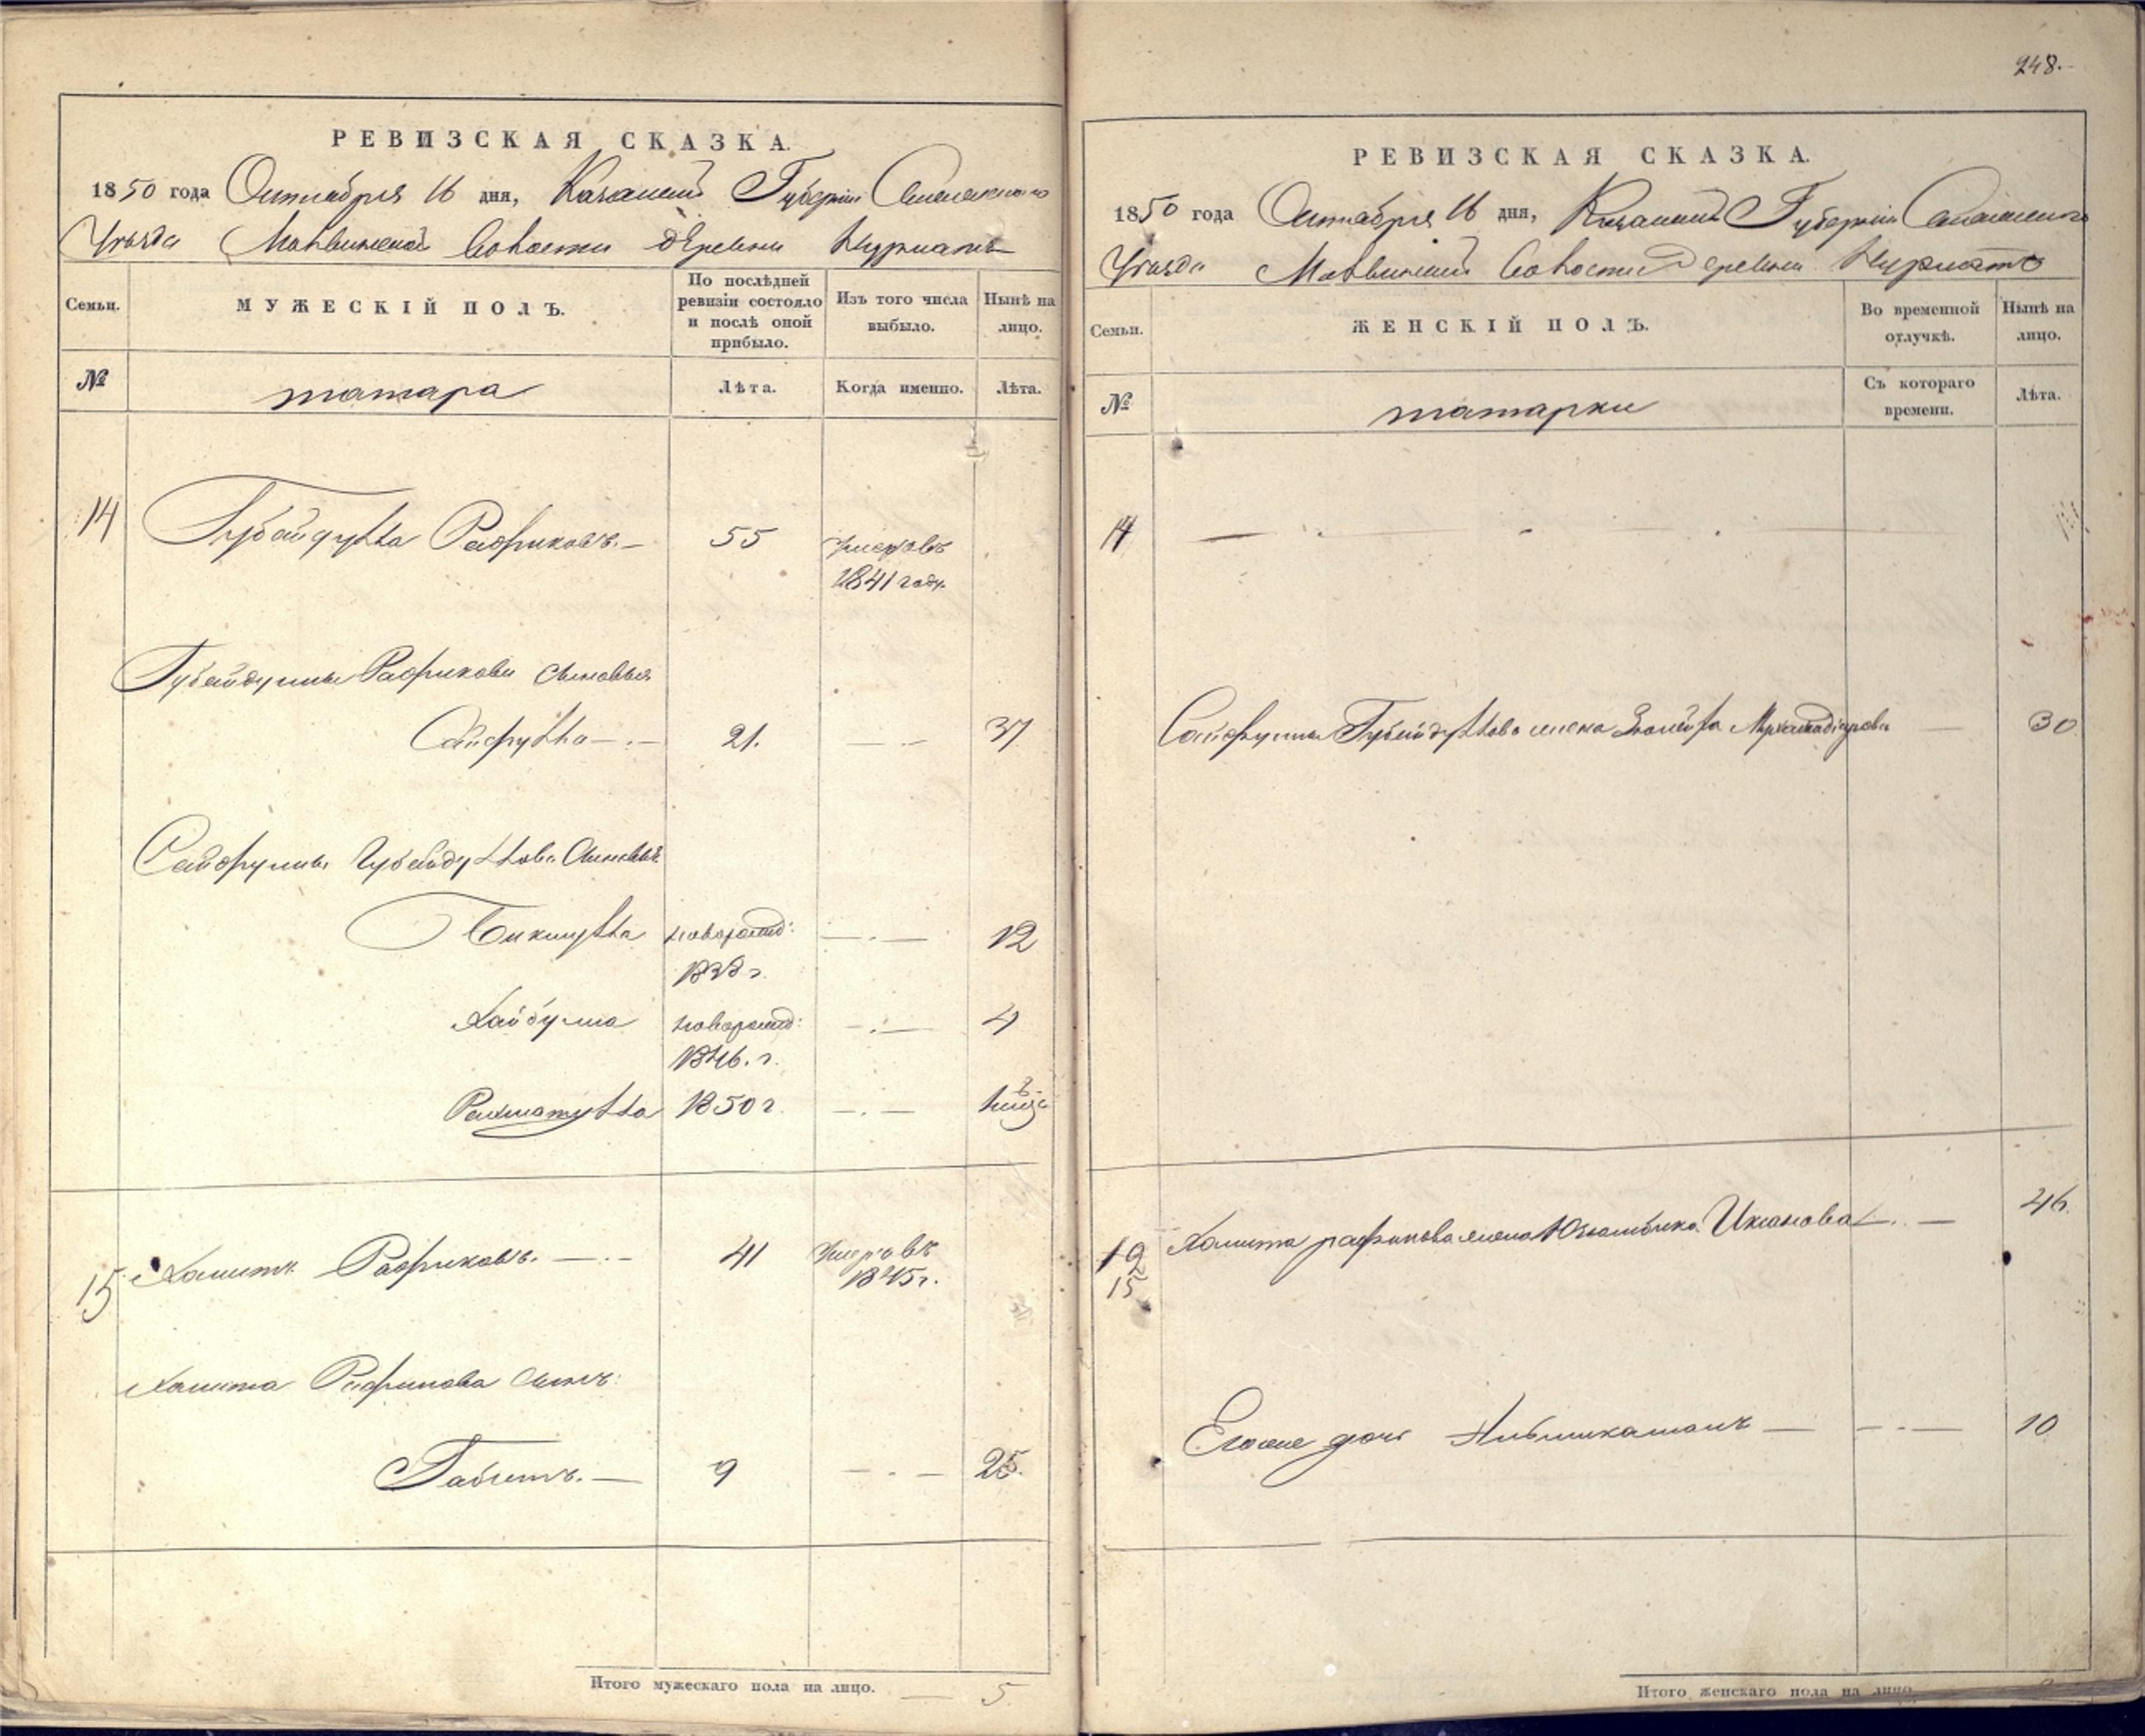 РЕВИЗСКАЯ СКАЗКА.
1850 года Октября 16 дня, Казанской Губернiи Спаскаго
Уезда Волости деревни Нурлатъ
Семьи.
МУЖЕСКIЙ ПОЛЪ.
По послѣдней ревизiи состояло и послѣ оной прибыло.
Изъ того числа выбыло.
Нынѣ на лицо.
№
татара
Лѣта.
Когда именно.
Лѣта.
14 Губайдулла Рафиковъ. 55 умеръ въ
1841 году.
Губайдуллы Рафикова сыновья
Сайфулла 21. 37
Сайфуллы Губайдуллова Сыновья
Бикмулла новорожд: 12
1838 г.
Хайбулла новорожд: 4
1846. г.
Рахматулла 1850 г.
15 Хамитъ Рафиковъ. 41 Умеръ въ
1845 г.
Хамита Рафикова сынъ:
Габитъ. 9 25.
Итого мужескаго пола на лицо. 5
248.
РЕВИЗСКАЯ СКАЗКА.
1850 года Октября 16 дня, Казанской Губернiи Спаскаго
Уезда Волости Деревни Нурлатъ
Семьи.
ЖЕНСКIЙ ПОЛЪ.
Во временной отлучкѣ.
Нынѣ на лицо.
№
татарки
Съ котораго времени.
Лѣта.
14
Сайфуллы Губайдуллова жена 30
12
15 Хамита рафикова жена 46.
Егоже дочь 10
Итого женскаго пола на лицо.